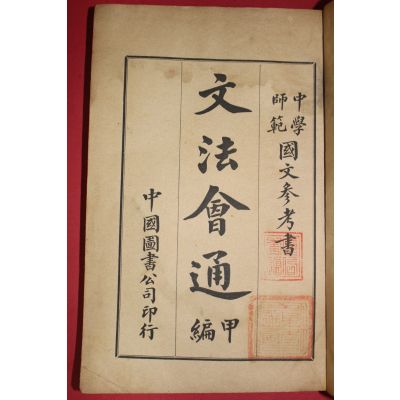 中學師範國文參考書
文法會通甲編
中國圖書公司印行